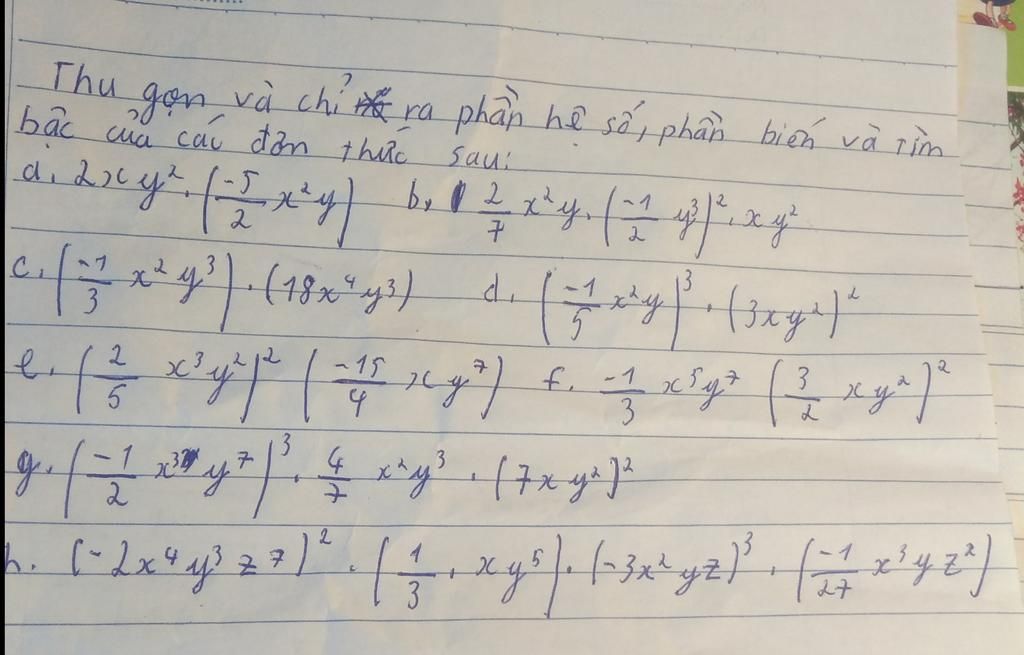 Thu gọn và chỉ ra phần hệ số, phần biến và tìm
bậc của các đơn thức sau:
a. 2xy². (-5/2 x²y) b, 2/7 x²y. (-1/2 y³)². xy²
c. (-1/3 x² y³) . (18x⁴y³) d. (-1/5 x²y)³ . (3xy²)²
e. (2/5 x³y²)² (-15/4 xy⁷) f. -1/3 x⁵y⁷ (3/2 xy²)²
g. (-1/2 x³ y⁷)³ . 4/7 x²y³ . (7xy²)²
h. (-2x⁴y³z⁷)² . (1/3 . xy⁵) . (-3x²yz)³ . (-1/27 x³yz²)